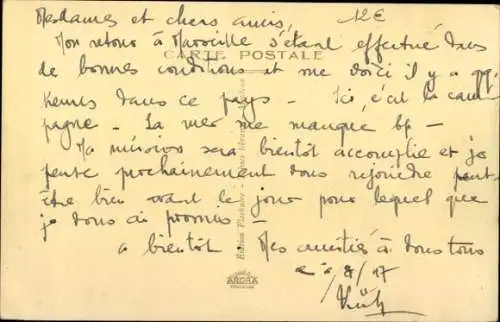 Mesdames et chers amis, 12E
Mon retour à Marseille s'étant effectué dans
CARTE POSTALE
de bonnes conditions et me voici il y a qq.
heures dans ce pays - Ici, c'est la cam
pagne - La mer me manque bp -
Ma mission sera bientôt accomplie et je
pense prochainement vous rejoindre peut-
être bien avant le jour pour lequel que
je vous ai promis -
a bientôt. Mes amitiés à vous tous
8/47